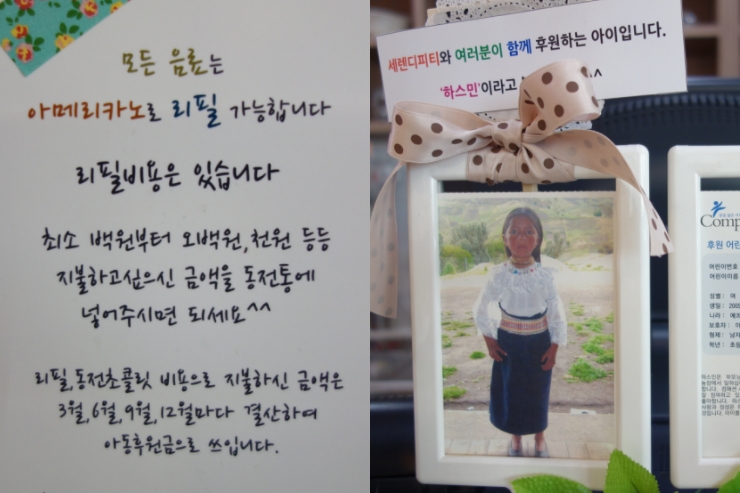 모든 음료는
아메리카노로 리필 가능합니다
리필비용은 있습니다
최소 백원부터 오백원, 천원 등등
지불하고싶으신 금액을 동전통에
넣어주시면 되세요^^
리필, 동전초콜릿 비용으로 지불하신 금액은
3월, 6월, 9월, 12월마다 결산하여
아동후원금으로 쓰입니다.
세렌디피티와 여러분이 함께 후원하는 아이입니다.
'하스민'이라고 ^^
Comp
후원 어린
어린이번호
어린이이름
성별 : 여
생일 : 200
나라 : 에콰
보호자 :
형제 : 남자
학년 : 초등